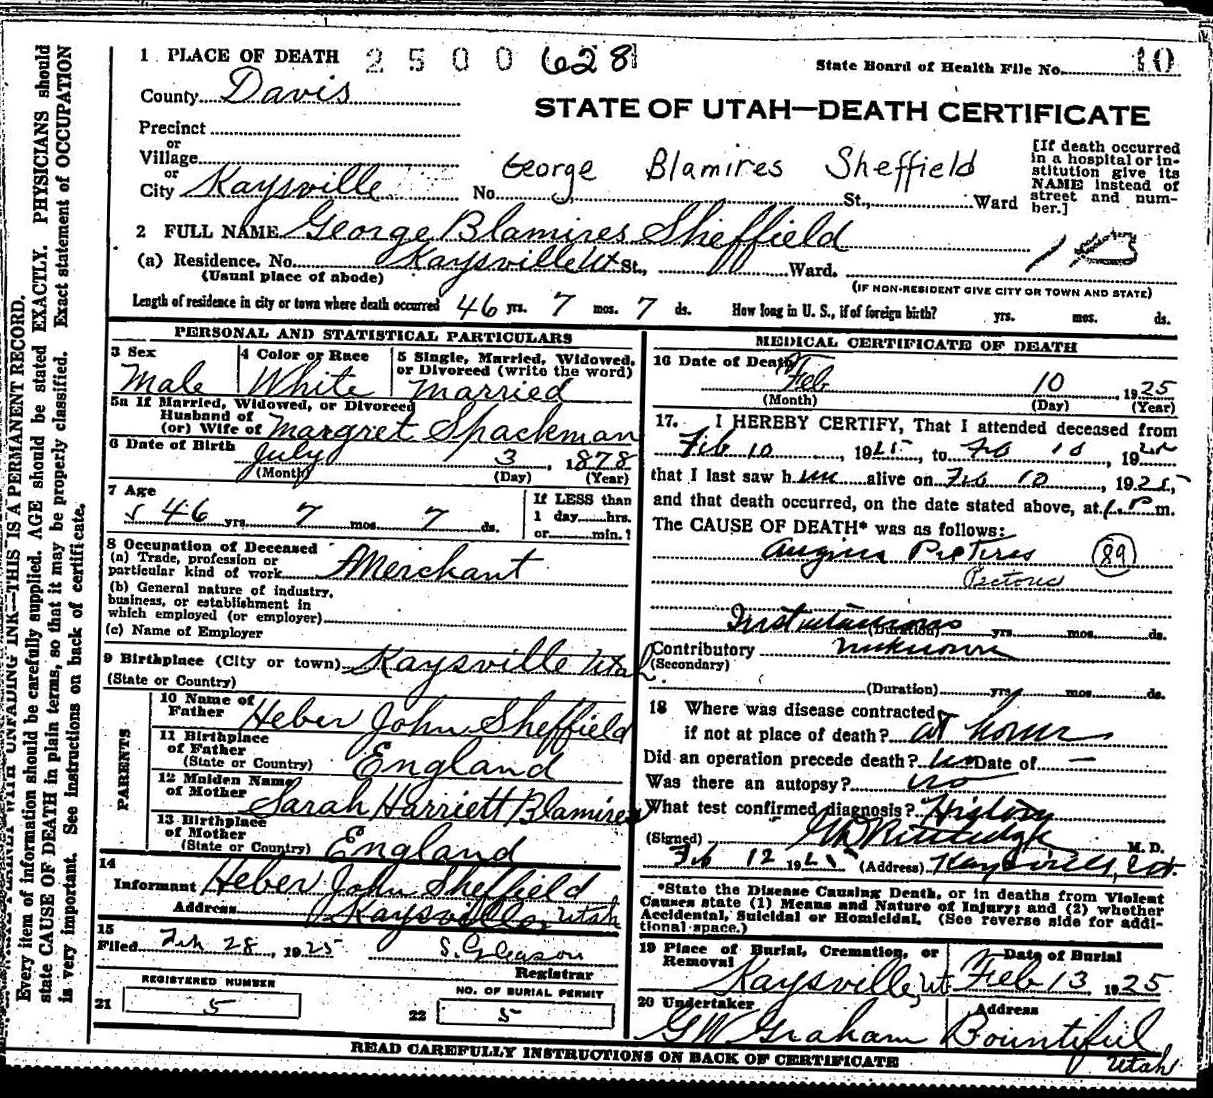 1 PLACE OF DEATH 2500 628
State Board of Health File No. 10
County Davis
STATE OF UTAH—DEATH CERTIFICATE
Precinct
or
Village
or
City Kaysville No. St., Ward
George Blamires Sheffield
[If death occurred
in a hospital or in-
stitution give its
NAME instead of
street and num-
ber.]
2 FULL NAME George Blamires Sheffield
(a) Residence. No. Kaysville Ut St., Ward.
(Usual place of abode)
(IF NON-RESIDENT GIVE CITY OR TOWN AND STATE)
Length of residence in city or town where death occurred 46 yrs. 7 mos. 7 ds. How long in U. S., if of foreign birth? yrs. mos. ds.
PERSONAL AND STATISTICAL PARTICULARS
3 Sex
Male
4 Color or Race
White
5 Single, Married, Widowed,
or Divorced (write the word)
Married
5a If Married, Widowed, or Divorced
Husband of
(or) Wife of Margret Spackman
6 Date of Birth
July 3, 1878
(Month) (Day) (Year)
7 Age
46 yrs. 7 mos. 7 ds.
If LESS than
1 day hrs.
or min.?
8 Occupation of Deceased
(a) Trade, profession or
particular kind of work Merchant
(b) General nature of industry,
business, or establishment in
which employed (or employer)
(c) Name of Employer
9 Birthplace (City or town) Kaysville Utah
(State or Country)
PARENTS
10 Name of
Father Heber John Sheffield
11 Birthplace
of Father
(State or Country) England
12 Maiden Name
of Mother Sarah Harriett Blamires
13 Birthplace
of Mother
(State or Country) England
14
Informant Heber John Sheffield
Address Kaysville Utah
15
Filed Feb 28, 1925 S. Gleason
Registrar
REGISTERED NUMBER
21 5
NO. OF BURIAL PERMIT
22 5
MEDICAL CERTIFICATE OF DEATH
16 Date of Death
Feb 10 1925
(Month) (Day) (Year)
17. I HEREBY CERTIFY, That I attended deceased from
Feb 10, 1925, to Feb 10, 1925
that I last saw him alive on Feb 10, 1925,
and that death occurred, on the date stated above, at m.
The CAUSE OF DEATH* was as follows:
Angina Pectoris 89
Pectoris
Instantaneous
(Duration) yrs. mos. ds.
Contributory unknown
(Secondary)
(Duration) yrs. mos. ds.
18 Where was disease contracted
if not at place of death? at home
Did an operation precede death? no Date of —
Was there an autopsy? no
What test confirmed diagnosis? History
(Signed) M. D.
Feb 12 1925 (Address) Kaysville, Ut.
*State the Disease Causing Death, or in deaths from Violent
Causes state (1) Means and Nature of Injury; and (2) whether
Accidental, Suicidal or Homicidal. (See reverse side for addi-
tional space.)
19 Place of Burial, Cremation, or
Removal
Kaysville, Ut
Date of Burial
Feb 13 1925
20 Undertaker
GW Graham
Address
Bountiful
Utah
READ CAREFULLY INSTRUCTIONS ON BACK OF CERTIFICATE
Every item of information should be carefully supplied. AGE should be stated EXACTLY. PHYSICIANS should
state CAUSE OF DEATH in plain terms, so that it may be properly classified. Exact statement of OCCUPATION
is very important. See instructions on back of certificate.
WITH UNFADING INK—THIS IS A PERMANENT RECORD.